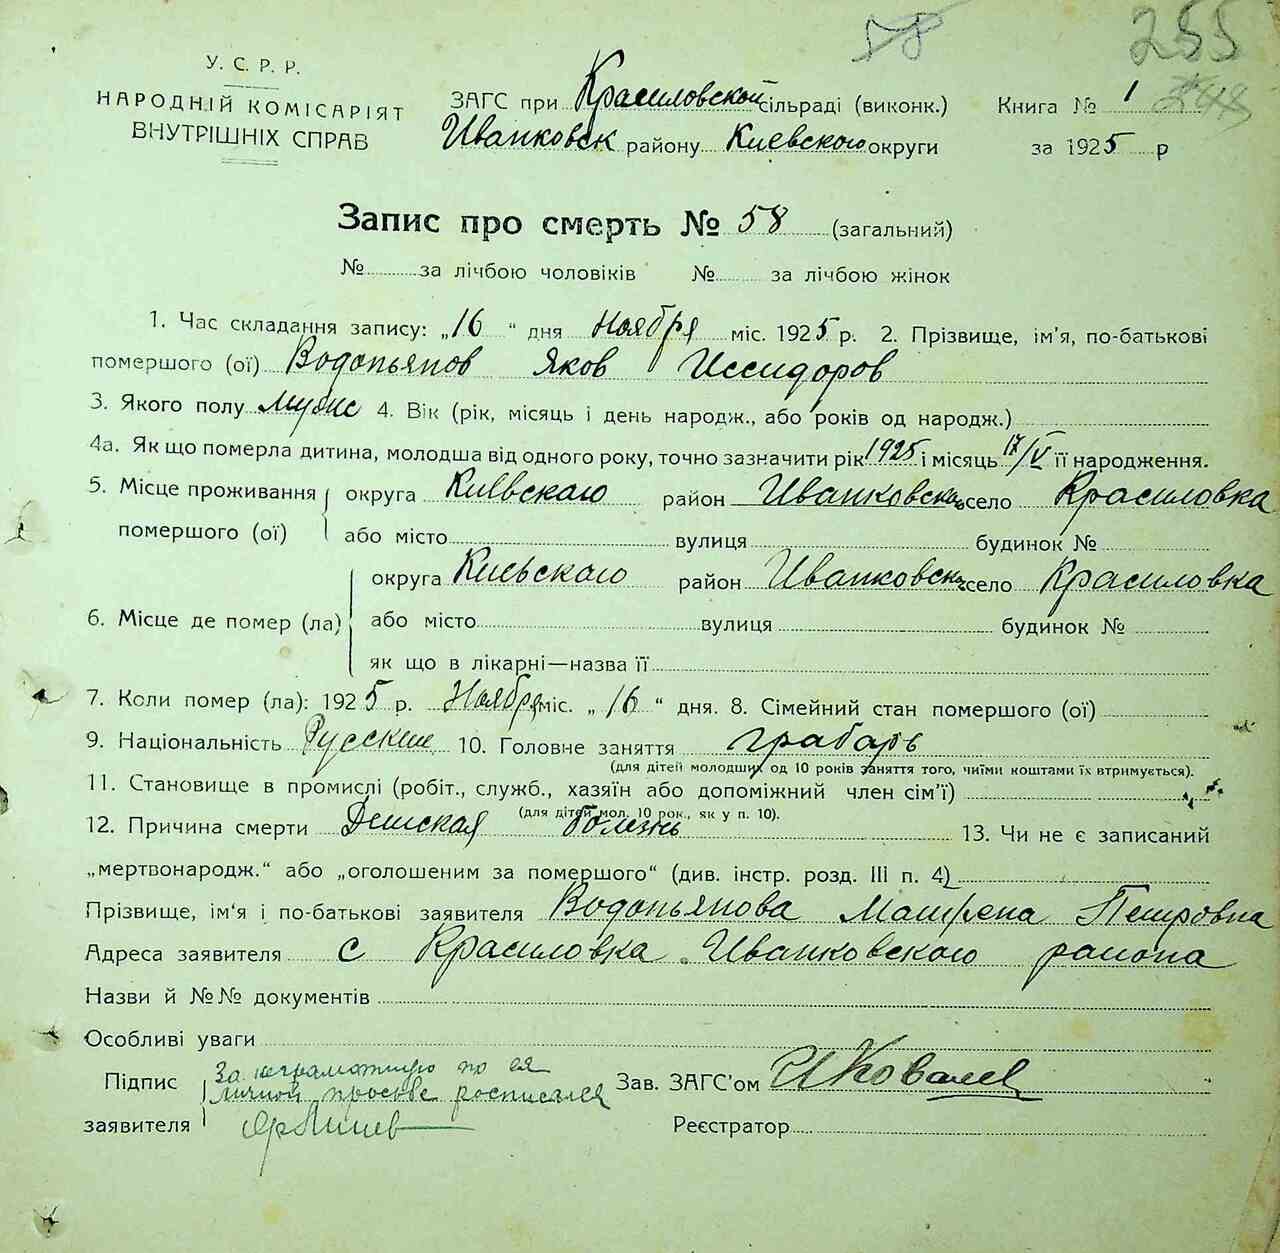 58 255
У. С. Р. Р.
НАРОДНІЙ КОМІСАРІЯТ
ВНУТРІШНІХ СПРАВ
ЗАГС при Красиловской сільраді (виконк.) Книга № 1
Иванковск району Киевского округи за 1925 р
Запис про смерть № 58 (загальний)
№ за лічбою чоловіків № за лічбою жінок
1. Час складання запису: „16 “ дня Ноября міс. 1925 р. 2. Прізвище, ім'я, по-батькові
помершого (ої) Водопьянов Яков Иссидоров
3. Якого полу Мужс 4. Вік (рік, місяць і день народж., або років од народж.)
4а. Як що померла дитина, молодша від одного року, точно зазначити рік 1925 і місяць 17/V її народження.
5. Місце проживання округа Киевского район Иванковск село Красиловка
помершого (ої) або місто вулиця будинок №
округа Киевского район Иванковск село Красиловка
6. Місце де помер (ла) або місто вулиця будинок №
як що в лікарні—назва її
7. Коли помер (ла): 1925 р. Ноября міс. „ 16 “ дня. 8. Сімейний стан помершого (ої)
9. Національність Русские 10. Головне заняття грабарь
(для дітей молодших од 10 років заняття того, чиїми коштами їх втримується).
11. Становище в промислі (робіт., служб., хазяїн або допоміжний член сім'ї)
(для дітей мол. 10 рок., як у п. 10).
12. Причина смерти Детская болезнь 13. Чи не є записаний
„мертвонародж.“ або „оголошеним за помершого“ (див. інстр. розд. III п. 4)
Прізвище, ім'я і по-батькові заявителя Водопьянова Матрена Петровна
Адреса заявителя с Красиловка Иванковского района
Назви й №№ документів
Особливі уваги
Підпис За неграмотную по ея Зав. ЗАГС'ом И Ковалев
личной просьбе росписался
заявителя Реєстратор